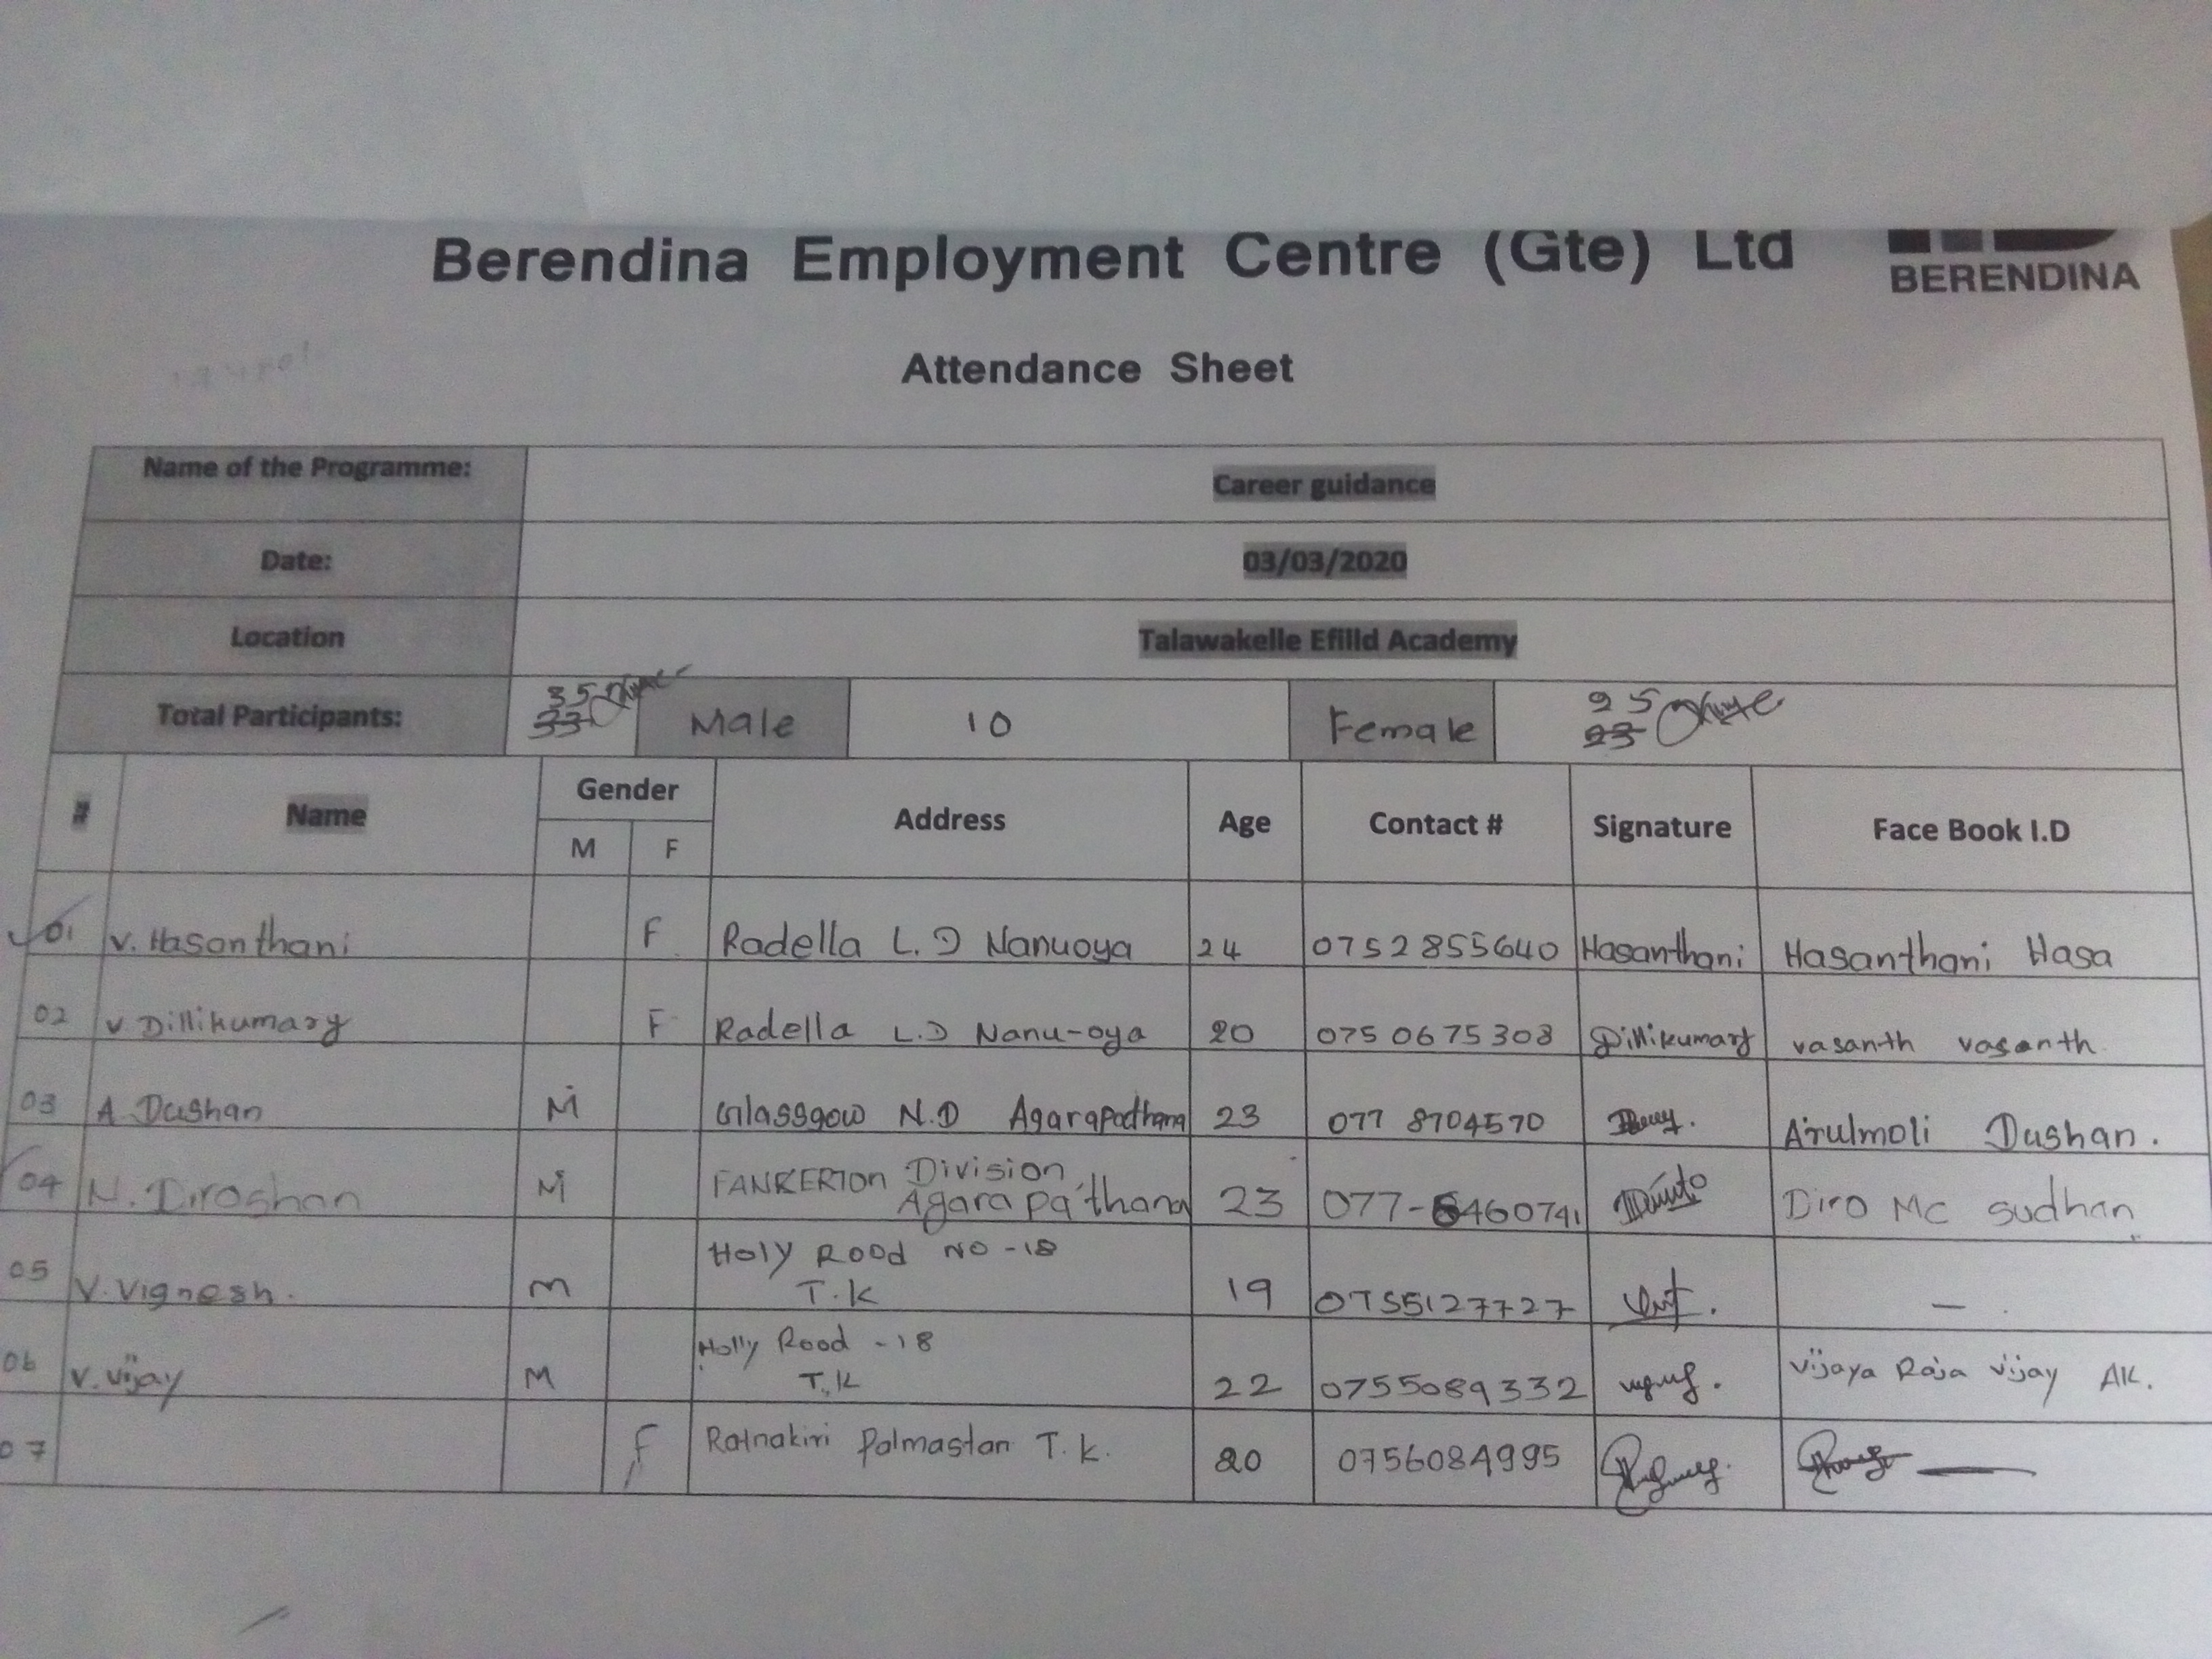 Berendina Employment Centre (Gte) Ltd
BERENDINA
Attendance Sheet
Name of the Programme: Career guidance
Date: 03/03/2020
Location Talawakelle Efilld Academy
Total Participants: 35 33 Male 10 Female 25 23
# Name Gender Address Age Contact # Signature Face Book I.D
M F
01 V. Hasonthani F Radella L.D Nanuoya 24 0752855640 Hasanthani Hasanthani Hasa
02 V Dillikumary F Radella L.D Nanu-oya 20 0750675308 Dillikumary vasanth vasanth
03 A. Dushan M Glassgow N.D Agarapathana 23 077 8704570 Arulmoli Dushan.
04 N. Diroshan M FANKERTON Division Agarapathana 23 077-6460741 Diro Mc sudhan
05 V. Vignesh. M Holy Rood NO -18 T.K 19 0755127727 -
06 V. Vijay M Holly Rood -18 T.K 22 0755089332 Vijaya Raja Vijay AK.
07 F Ratnakiri Palmastan T.k. 20 0756084995